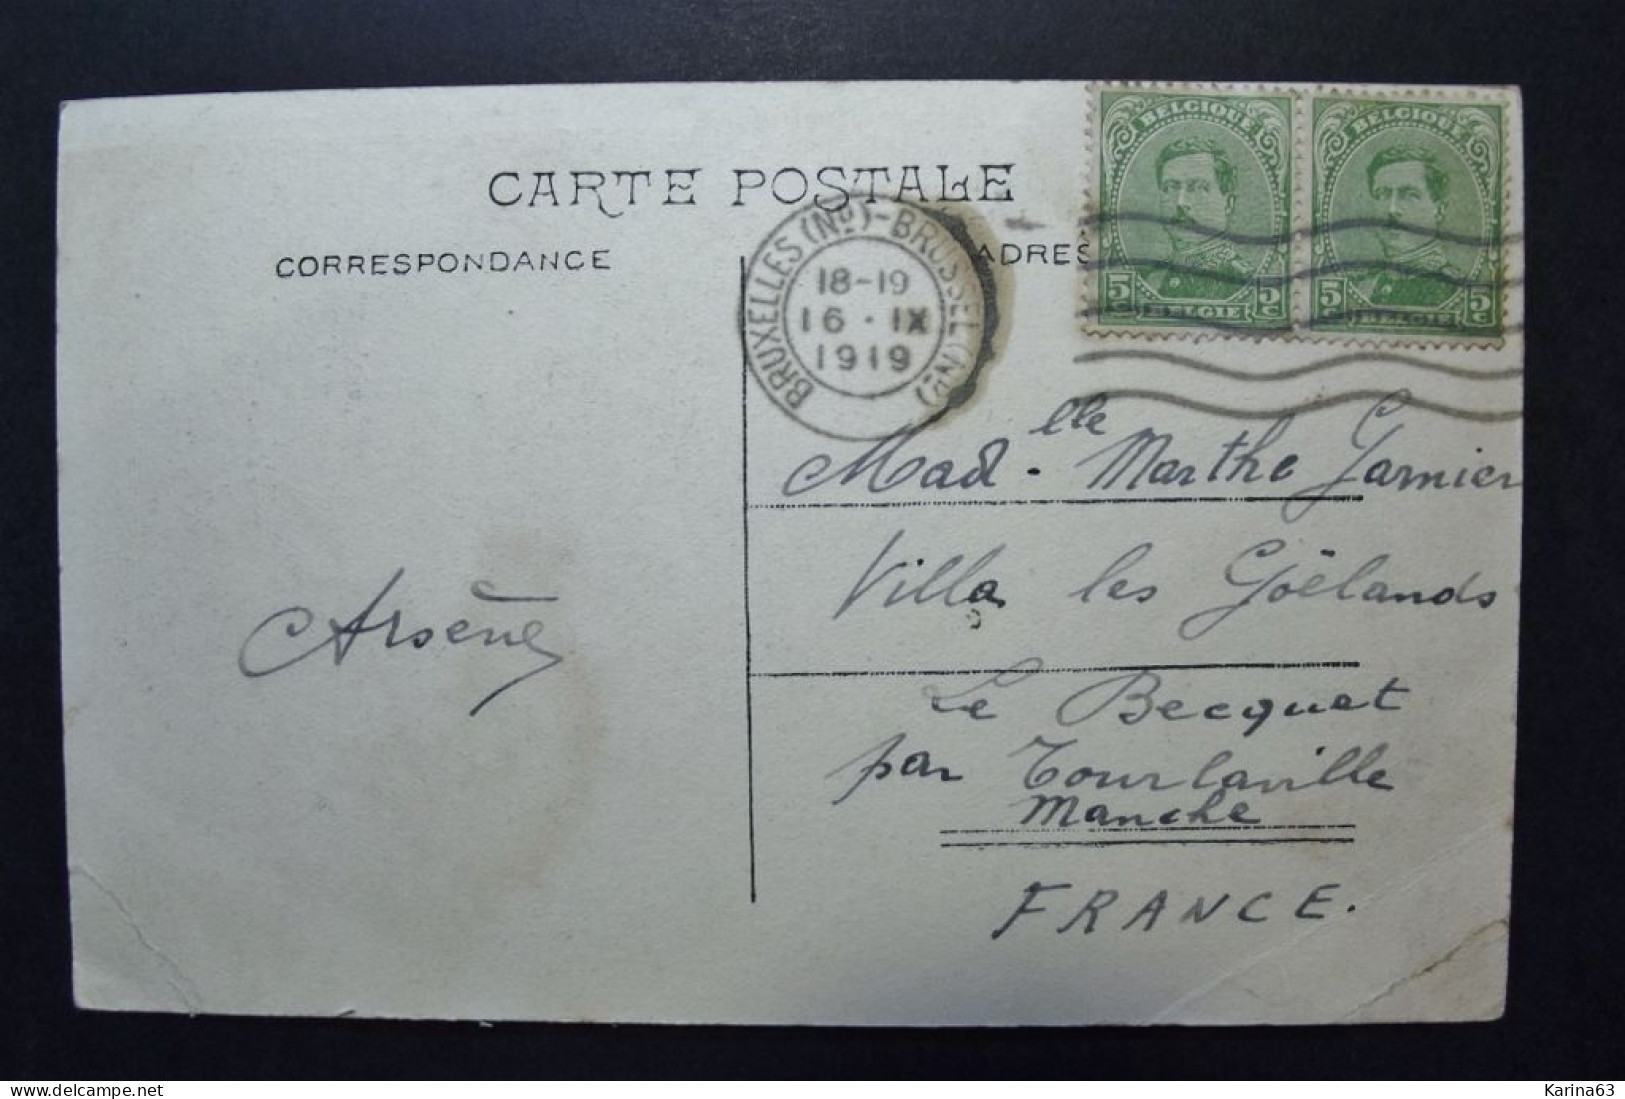 CARTE POSTALE
CORRESPONDANCE
ADRES
BRUXELLES (Nᴅ)-BRUSSEL (Nᴅ)
18-19
16 · IX
1919
BELGIQUE
5 c BELGIE 5 c
BELGIQUE
5 c BELGIE 5 c
Madelle Marthe Garnier
Villa les Goëlands
Le Becquet
par Tourlaville
Manche
FRANCE.
Arsène
Karina63